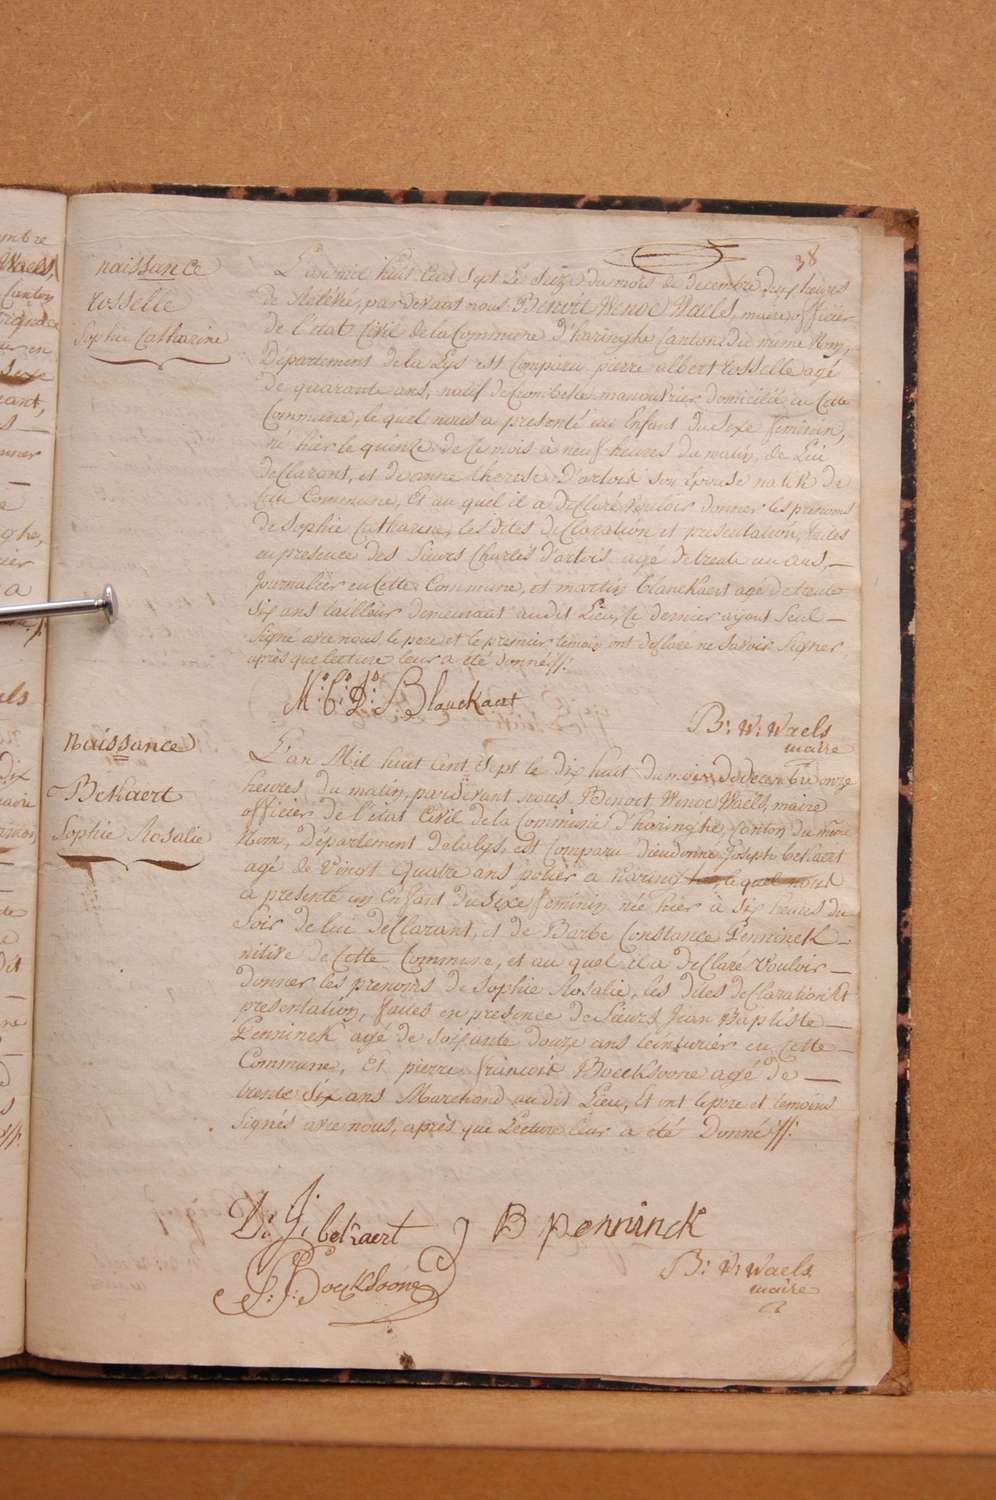 38
naissance
Rosselle
Sophie Catharine
L'an mil huit cent sept le seize du mois de decembre deux heures
de relevée, par devant nous Benoit Wenoc Waels, maire officier
de l'état civil de la Commune d'haringhe Canton du même Nom,
Département de la Lys est Comparu pierre albert Rosselle agé
de quarante ans, natif de Crombeke manouvrier domicilié en Cette
Commune, le quel nous a presenté un Enfant du sexe feminin,
né hier le quinze de ce mois à neuf heures du matin, de Lui
declarant, et de anne therese D'artois son Epouse native de
Commune, Et au quel il a declaré vouloir donner les prenoms
de Sophie Catharine, les dites declaration et presentation, faites
en presence des sieurs Charles D'artois agé de trente un ans, —
Journalier en Cette Commune, et martin Blanckaert agé de trente
six ans tailleur demeurant audit Lieu, Ce dernier ayant seul —
Signé avec nous le pere et le premier temoin ont declaré ne savoir signer
après que lecture leur a été donnée.
Blanckaert
B: W: Waels
maire
Naissance
Békaert
Sophie Rosalie
L'an Mil huit cent sept le dix huit du mois de decembre onze
heures du matin, par devant nous Benoet Wenoc Waels, maire
officier de l'état Civil de la Commune d'haringhe, Canton du même
Nom, Département de la lys, est Comparu dieudonné Joseph bekaert
agé de vingt quatre ans potier a haringhe le quel nous
a presenté un Enfant du sixe feminin née hier à six heures du
soir de lui declarant, et de Barbe Constance Penninck —
nitive de Cette Commune, et au quel il a declaré vouloir —
donner les prenoms de Sophie Rosalie, les dites declaration Et
presentation, faites en presence de sieurs Jean Baptiste —
Penninck agé de soixante douze ans teinturier en Cette —
Commune, Et pierre françois Boecksoone agé de —
trente six ans Marchand audit Lieu, Et ont le pere et temoins
signés avec nous, après que Lecture leur a été Donnée.
D: J: bekaert J B penninck
P: F: Boecksoone
B: W: Waels
maire